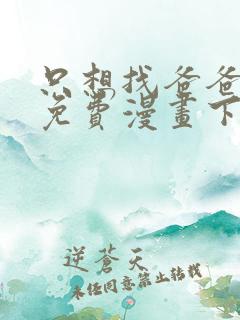 只想找爸爸
免費漫畫下
逆蒼天
未任同意禁止转载